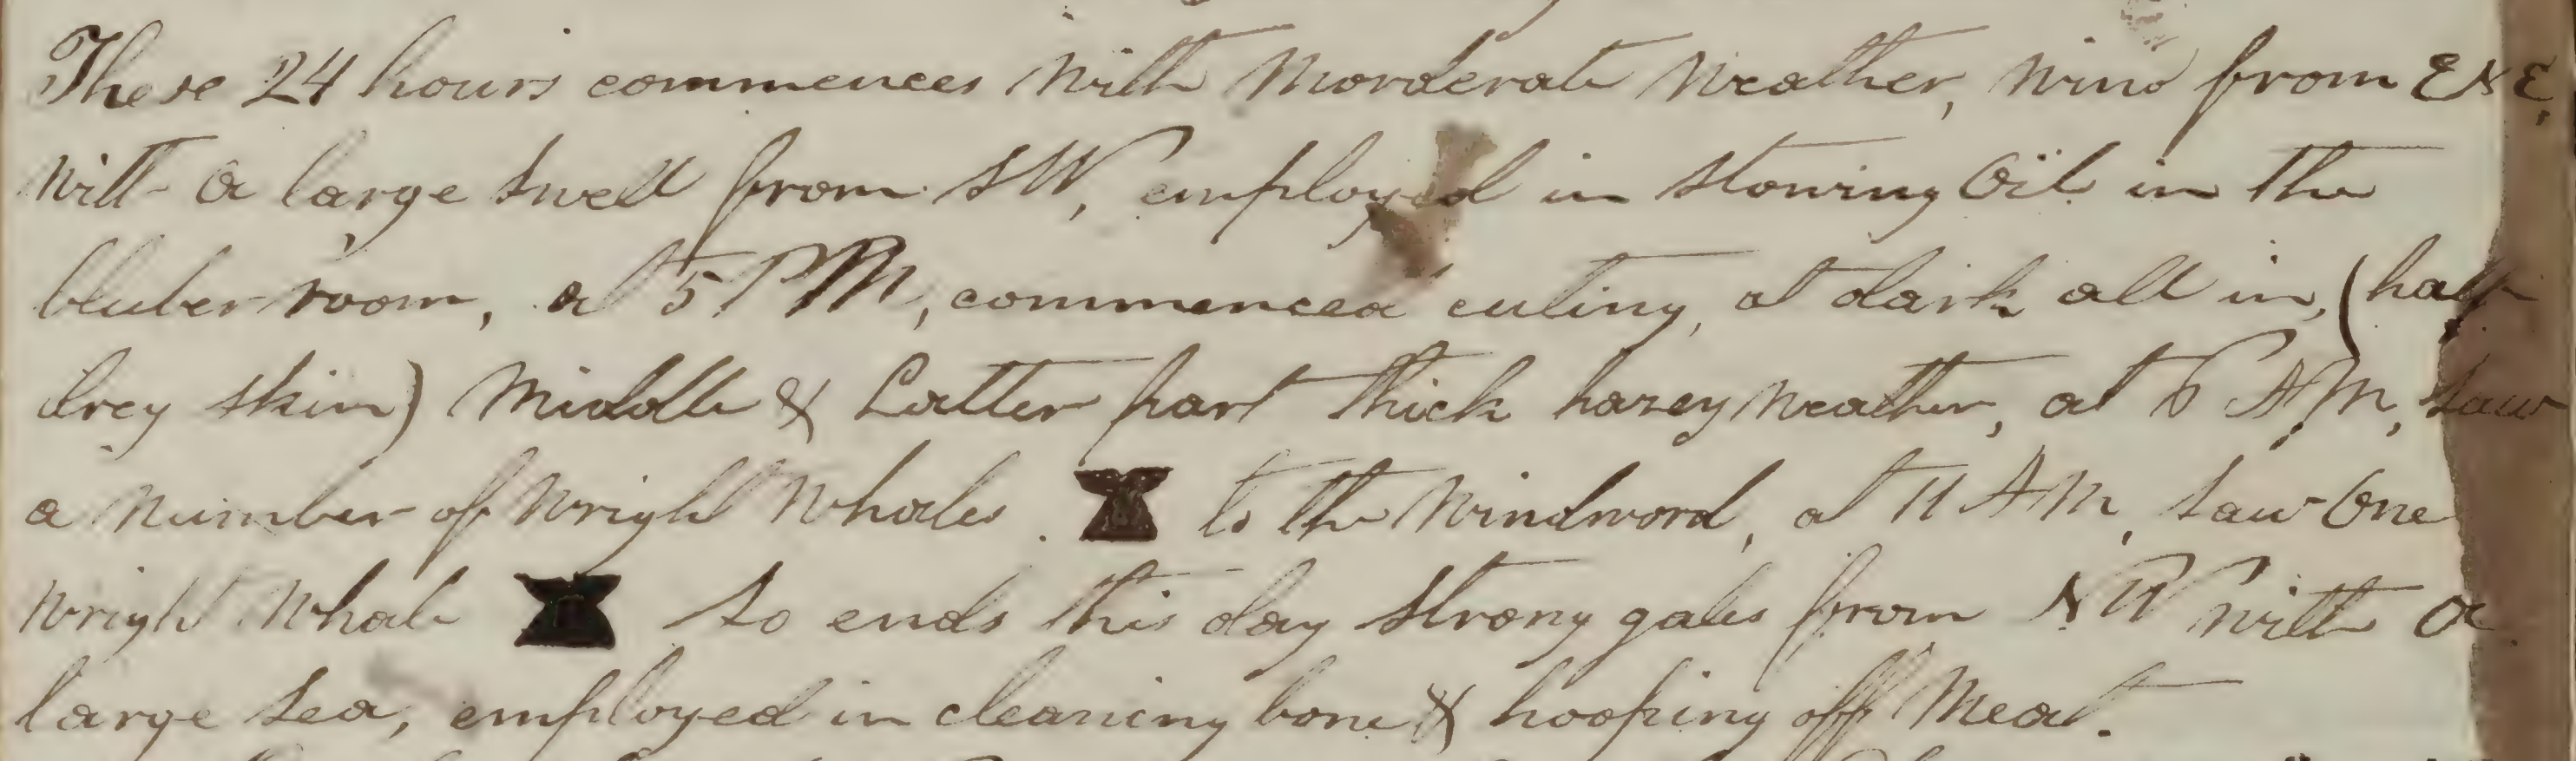 These 24 hours commences with Morderate Weather, Wind from ENE,
with a large swell from SW, employed in stowing Oil in the
bluber room, at 5 PM, commenced cuting, at dark all in, (half
drey skin) Middle & Latter part thick hazey weather, at 6 AM, saw
a Number of Wright Whales. to the Windword, at 11 AM, saw One
Wright Whale so ends this day strong gales from NW with a
large sea, employed in cleaning bone & hooping off Meat.